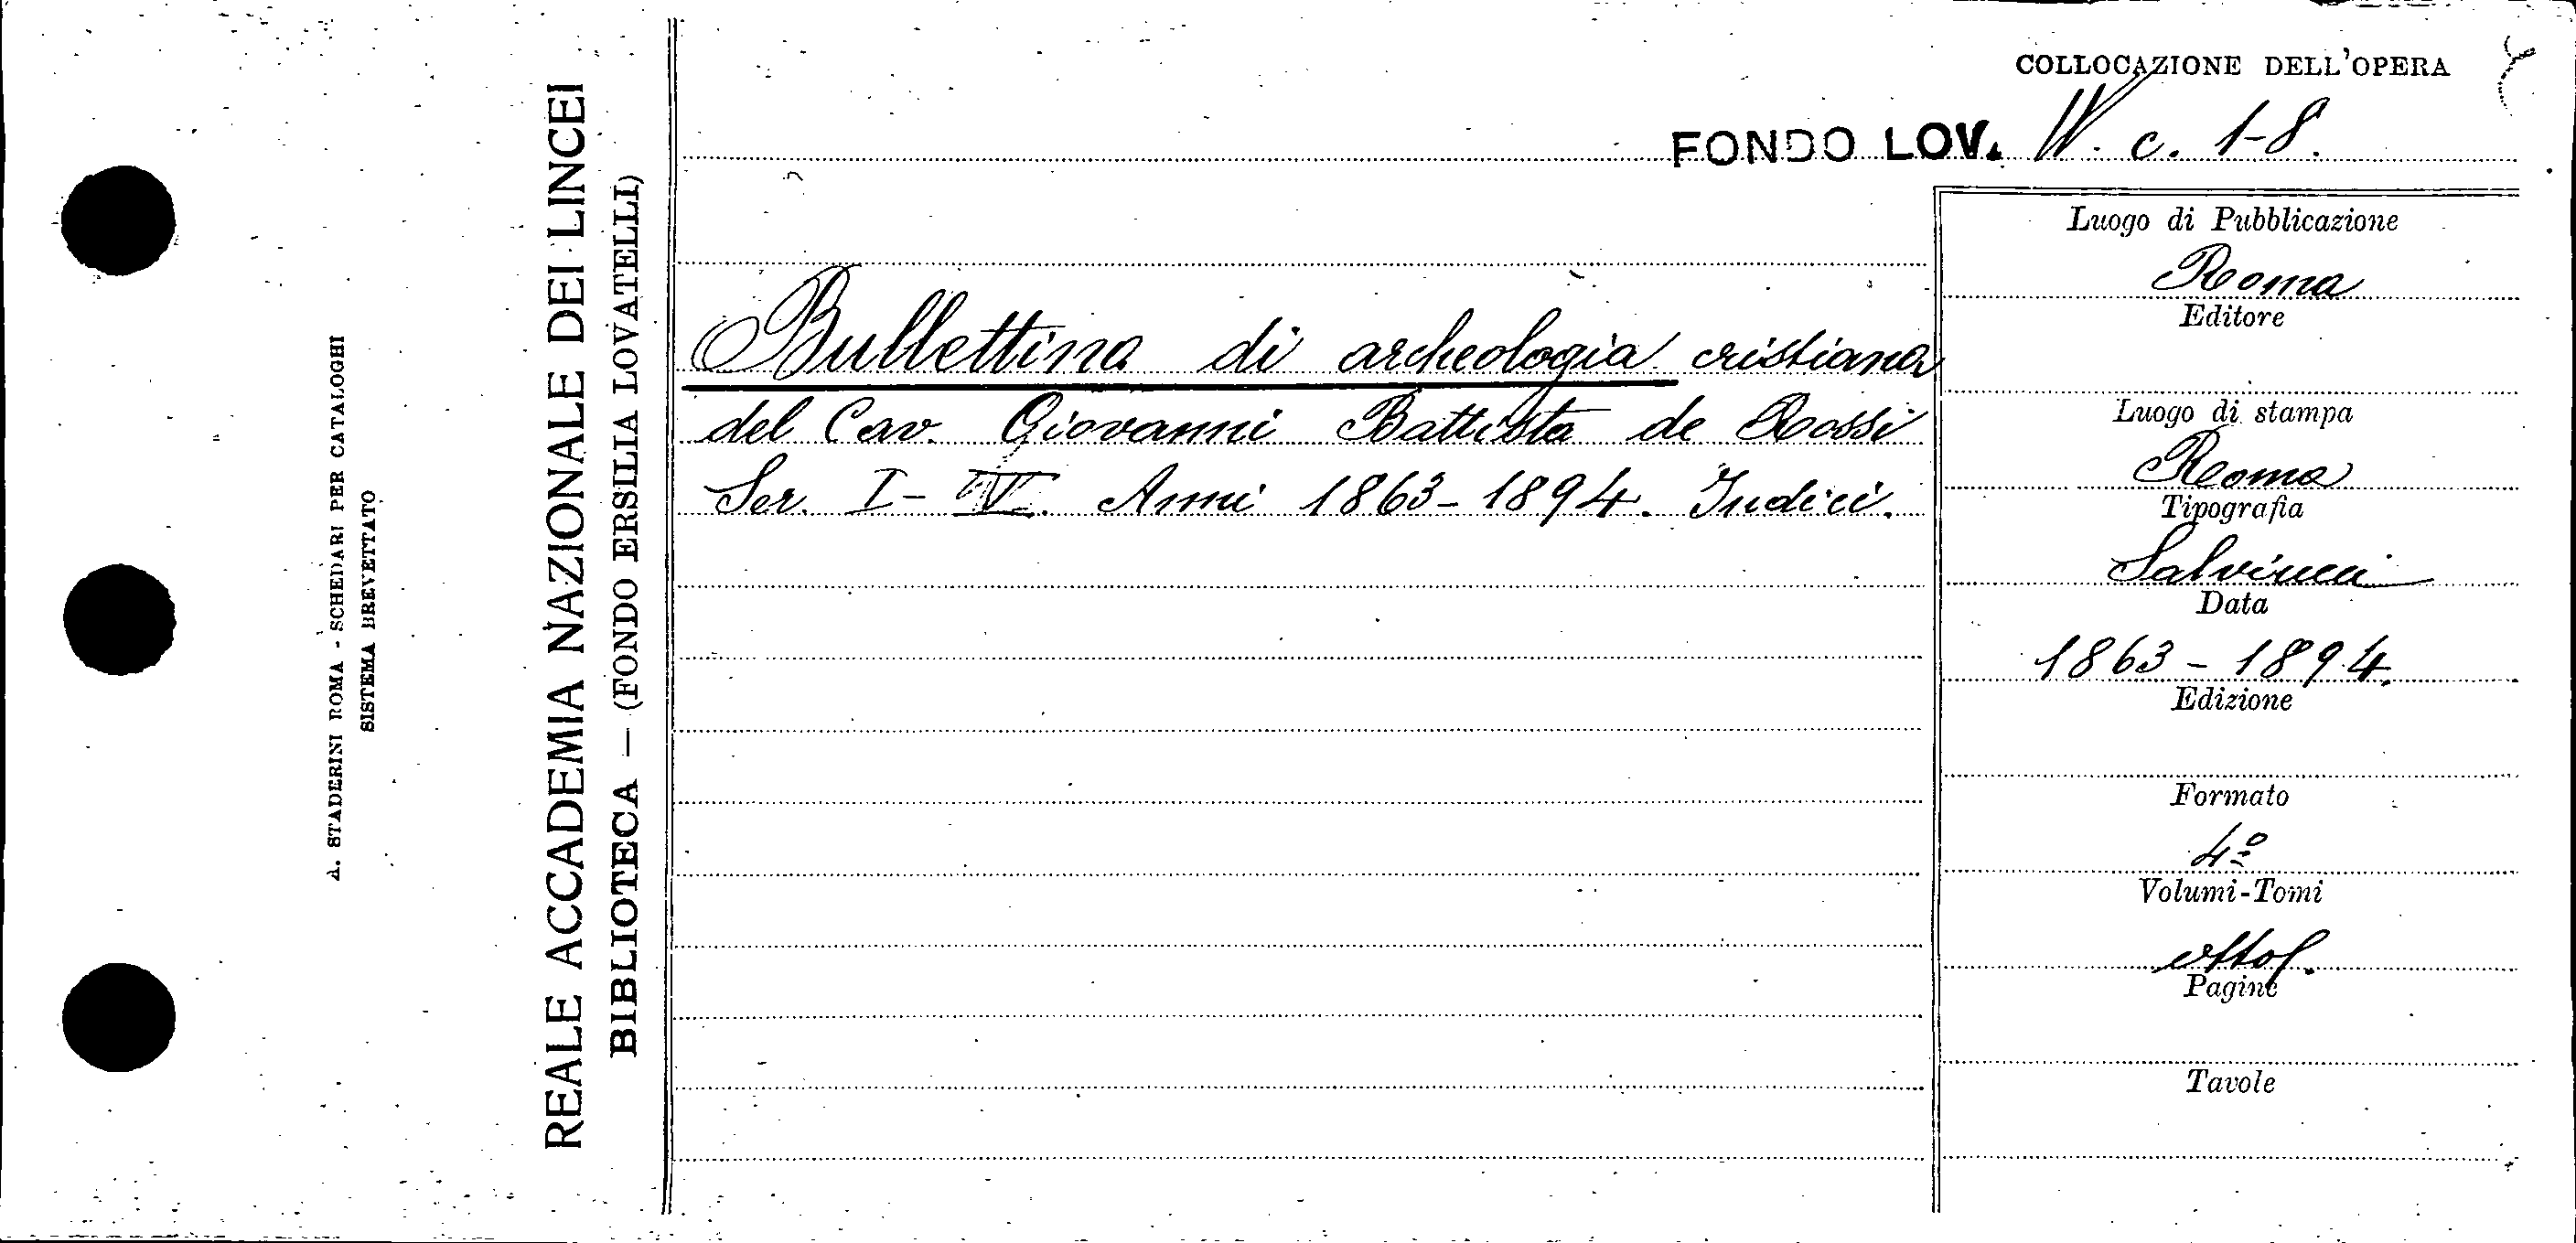 A. STADERINI ROMA - SCHEDARI PER CATALOGHI
SISTEMA BREVETTATO
REALE ACCADEMIA NAZIONALE DEI LINCEI
BIBLIOTECA — (FONDO ERSILIA LOVATELLI)
COLLOCAZIONE DELL'OPERA
FONDO LOV. W. c. 1-8.
Bullettino di archeologia cristiana
del Cav. Giovanni Battista de Rossi
Ser. I - V. Anni 1863-1894. Indici.
Luogo di Pubblicazione
Roma
Editore
Luogo di stampa
Roma
Tipografia
Salviucci
Data
1863 - 1894.
Edizione
Formato
4º
Volumi-Tomi
Pagine
Tavole